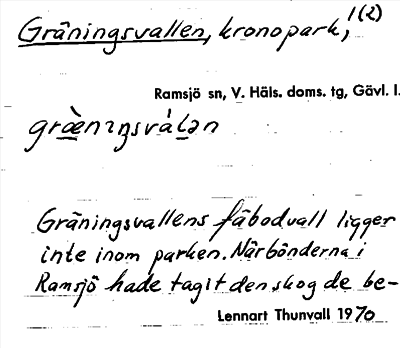 Gräningsvallen, kronopark, 1(2)
Ramsjö sn, V. Häls. doms. tg, Gävl. l.
græ̀nɪŋsváḷən
Gräningsvallens fäbodvall ligger
inte inom parken. Närbönderna i
Ramsjö hade tagit den skog de be-
Lennart Thunvall 1970